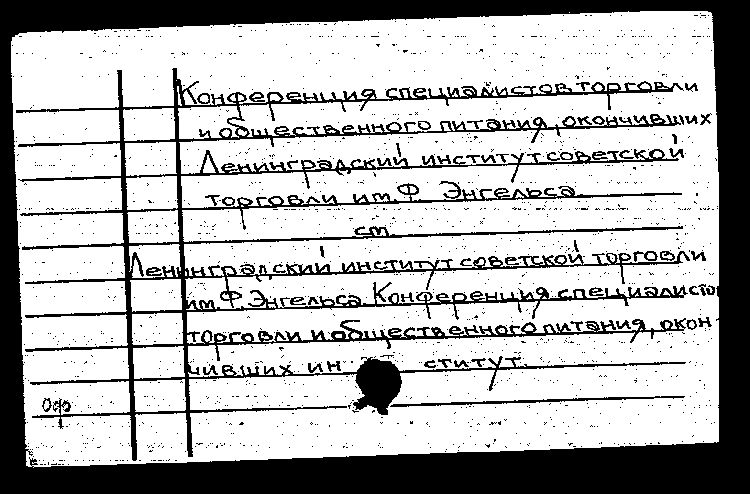 Конференция специалистов торговли
и общественного питания, окончивших
Ленинградский институт советской
торговли им. Ф. Энгельса
см.
Ленинградский институт советской торговли
им. Ф. Энгельса. Конференция специалистов
торговли и общественного питания, окон-
чивших ин ститут.
Офр